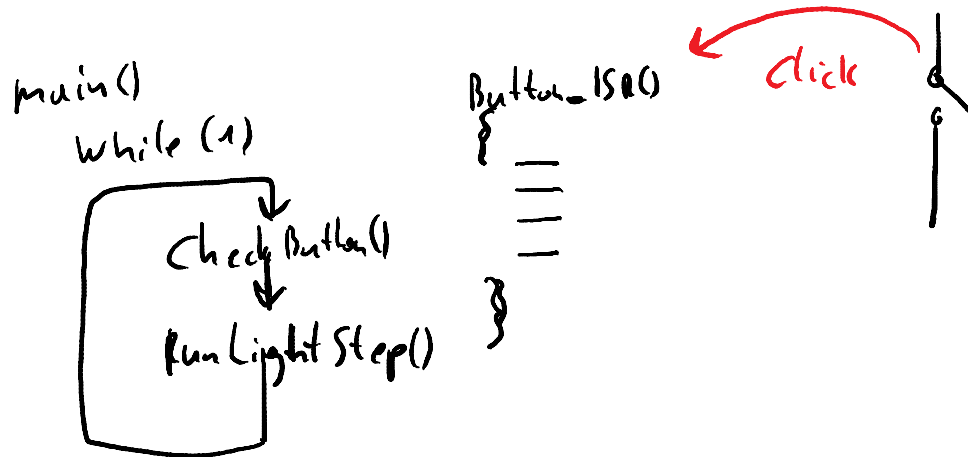 main()
while (1)
Check Button()
RunLightStep()
Button_ISR()
{
}
Click